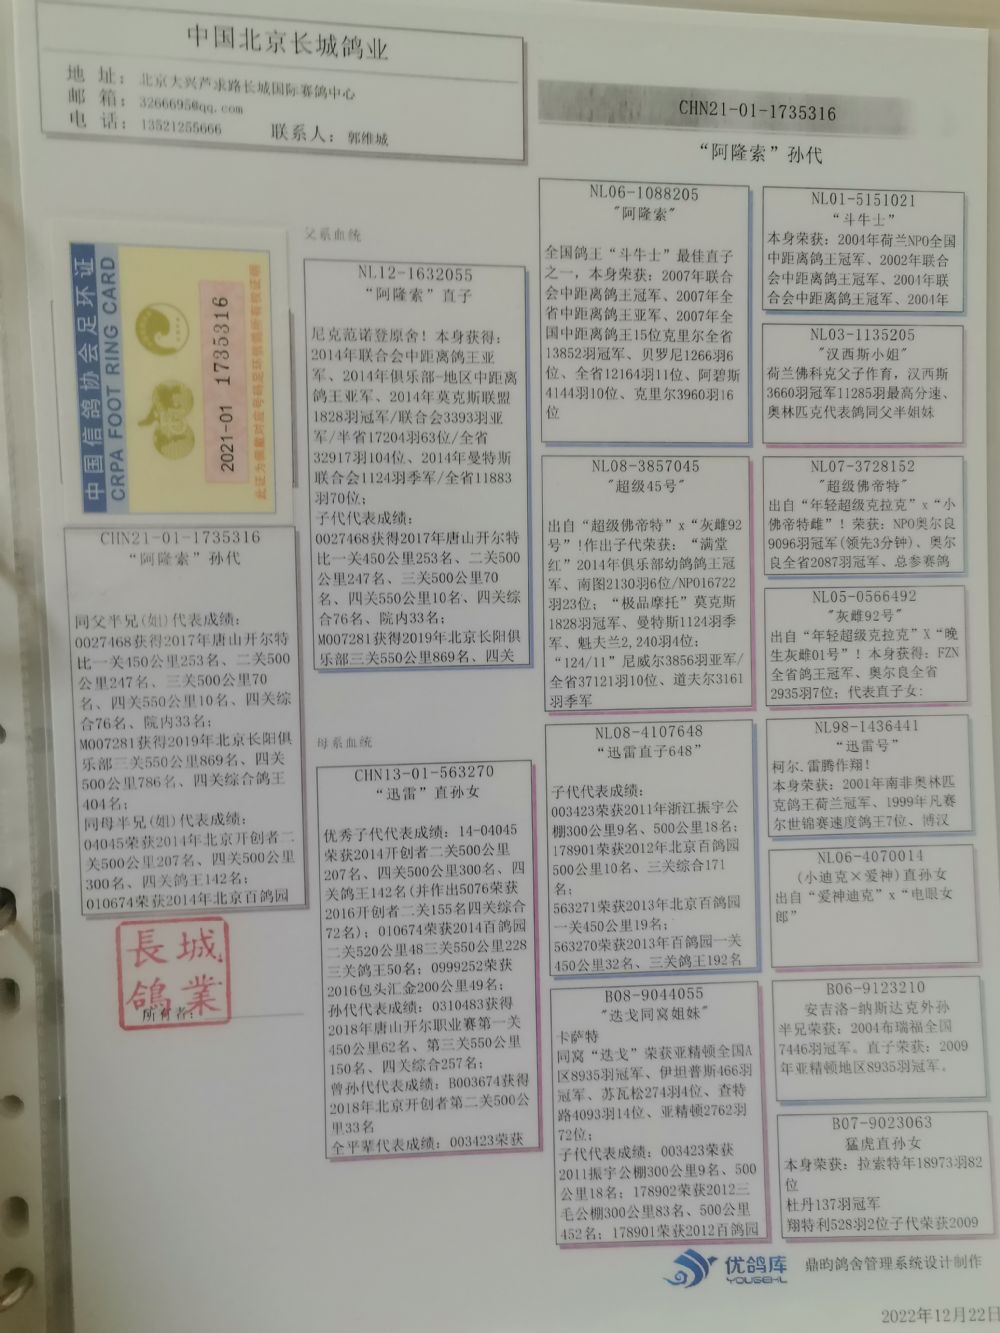 中国北京长城鸽业
地 址: 北京大兴芦求路长城国际赛鸽中心
邮 箱: 3266695@qq.com
电 话: 13521255666 联系人: 郭维城
中国信鸽协会足环证
CRPA FOOT RING CARD
2021-01 1735316
CHN21-01-1735316
“阿隆索”孙代
同父半兄(姐)代表成绩:
0027468获得2017年唐山开尔特
比一关450公里253名、二关500
公里247名、三关500公里70
名、四关550公里10名、四关综
合76名、院内33名;
M007281获得2019年北京长阳俱
乐部三关550公里869名、四关
500公里786名、四关综合鸽王
404名;
同母半兄(姐)代表成绩:
04045荣获2014年北京开创者二
关500公里207名、四关500公里
300名、四关鸽王142名;
010674荣获2014年北京百鸽园
長城
鸽業
所有者:
父系血统
NL12-1632055
“阿隆索”直子
尼克范诺登原舍!本身获得:
2014年联合会中距离鸽王亚
军、2014年俱乐部-地区中距离
鸽王亚军、2014年莫克斯联盟
1828羽冠军/联合会3393羽亚
军/半省17204羽63位/全省
32917羽104位、2014年曼特斯
联合会1124羽季军/全省11883
羽70位;
子代代表成绩:
0027468获得2017年唐山开尔特
比一关450公里253名、二关500
公里247名、三关500公里70
名、四关550公里10名、四关综
合76名、院内33名;
M007281获得2019年北京长阳俱
乐部三关550公里869名、四关
母系血统
CHN13-01-563270
“迅雷”直孙女
优秀子代代表成绩:14-04045
荣获2014开创者二关500公里
207名、四关500公里300名、四
关鸽王142名(并作出5076荣获
2016开创者二关155名四关综合
72名);010674荣获2014百鸽园
二关520公里48三关550公里228
三关鸽王50名;0999252荣获
2016包头汇金200公里49名;
孙代代表成绩:0310483获得
2018年唐山开尔职业赛第一关
450公里62名、第三关550公里
150名、四关综合257名;
曾孙代代表成绩:B003674获得
2018年北京开创者第二关500公
里33名
全平辈代表成绩:003423荣获
CHN21-01-1735316
“阿隆索”孙代
NL06-1088205
"阿隆索"
全国鸽王“斗牛士”最佳直子
之一,本身荣获:2007年联合
会中距离鸽王冠军、2007年全
省中距离鸽王亚军、2007年全
国中距离鸽王15位克里尔全省
13852羽冠军、贝罗尼1266羽6
位、全省12164羽11位、阿碧斯
4144羽10位、克里尔3960羽16
位
NL08-3857045
"超级45号"
出自“超级佛帝特”x“灰雌92
号”!作出子代荣获:“满堂
红”2014年俱乐部幼鸽鸽王冠
军、南图2130羽6位/NPO16722
羽23位;“极品摩托”莫克斯
1828羽冠军、曼特斯1124羽季
军、魁夫兰2,240羽4位;
“124/11”尼威尔3856羽亚军/
全省37121羽10位、道夫尔3161
羽季军
NL08-4107648
“迅雷直子648”
子代代表成绩:
003423荣获2011年浙江振宇公
棚300公里9名、500公里18名;
178901荣获2012年北京百鸽园
500公里10名、三关综合171
名;
563271荣获2013年北京百鸽园
一关450公里19名;
563270荣获2013年百鸽园一关
450公里32名、三关鸽王192名
B08-9044055
"迭戈同窝姐妹”
卡萨特
同窝“迭戈”荣获亚精顿全国A
区8935羽冠军、伊坦普斯466羽
冠军、苏瓦松274羽4位、查特
路4093羽14位、亚精顿2762羽
72位;
子代代表成绩:003423荣获
2011振宇公棚300公里9名、500
公里18名;178902荣获2012三
毛公棚300公里83名、500公里
452名;178901荣获2012百鸽园
NL01-5151021
“斗牛士”
本身荣获:2004年荷兰NPO全国
中距离鸽王冠军、2002年联合
会中距离鸽王冠军、2004年联
合会中距离鸽王冠军、2004年
NL03-1135205
"汉西斯小姐"
荷兰佛科克父子作育,汉西斯
3660羽冠军11285羽最高分速、
奥林匹克代表鸽同父半姐妹
NL07-3728152
"超级佛帝特"
出自“年轻超级克拉克”x“小
佛帝特雌”!荣获:NPO奥尔良
9096羽冠军(领先3分钟)、奥尔
良全省2087羽冠军、总参赛鸽
NL05-0566492
"灰雌92号"
出自“年轻超级克拉克”X“晚
生灰雌01号”!本身获得:FZN
全省鸽王冠军、奥尔良全省
2935羽7位;代表直子女:
NL98-1436441
“迅雷号”
柯尔.雷腾作翔!
本身荣获:2001年南非奥林匹
克鸽王荷兰冠军、1999年凡赛
尔世锦赛速度鸽王7位、博汉
NL06-4070014
(小迪克×爱神)直孙女
出自“爱神迪克”x“电眼女
郎”
B06-9123210
安吉洛-纳斯达克外孙
半兄荣获:2004布瑞福全国
7446羽冠军。直子荣获:2009
年亚精顿地区8935羽冠军。
B07-9023063
猛虎直孙女
本身荣获:拉索特年18973羽82
位
杜丹137羽冠军
翔特利528羽2位子代荣获2009
优鸽库
YOUGEKU
鼎昀鸽舍管理系统设计制作
2022年12月22日